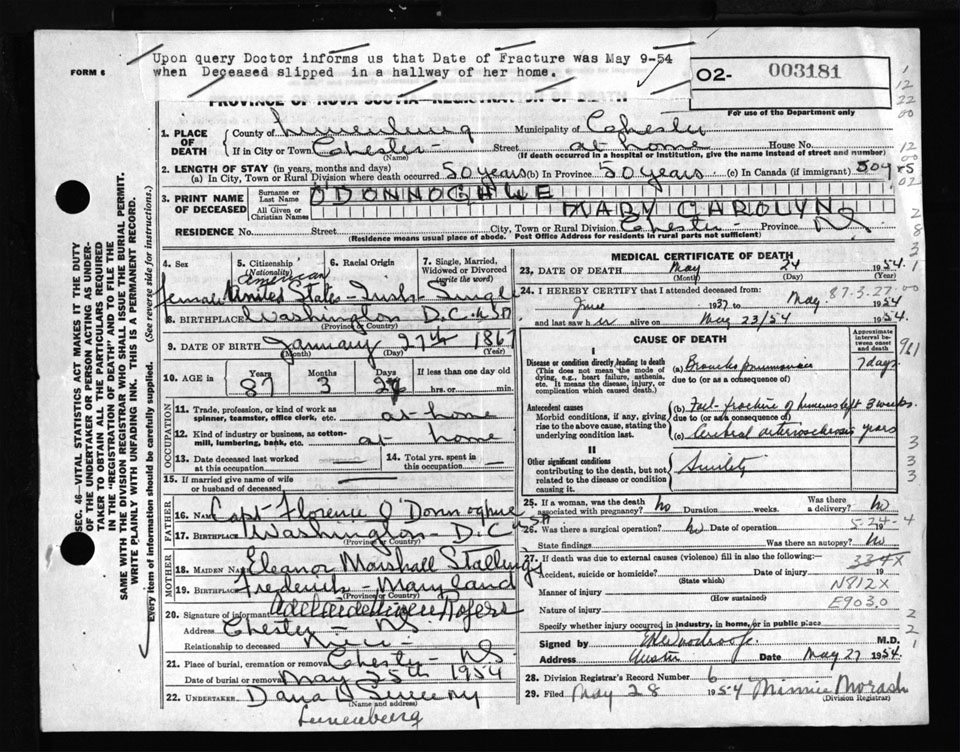 Upon query Doctor informs us that Date of Fracture was May 9-54
when Deceased slipped in a hallway of her home.
FORM 6
O2- 003181
PROVINCE OF NOVA SCOTIA—REGISTRATION OF DEATH
For use of the Department only
1. PLACE OF DEATH { County of Lunenburg Municipality of Chester
If in City or Town Chester - Street at home House No.
(Name) (If death occurred in a hospital or institution, give the name instead of street and number)
2. LENGTH OF STAY (in years, months and days)
(a) In City, Town or Rural Division where death occurred 50 years (b) In Province 50 years (c) In Canada (if immigrant) 50 yrs
3. PRINT NAME OF DECEASED { Surname or Last Name O DONNOGHUE
All Given or Christian Names MARY CAROLYN
RESIDENCE No. Street City, Town or Rural Division Chester Province NS
(Residence means usual place of abode. Post Office Address for residents in rural parts not sufficient)
4. Sex 5. Citizenship (Nationality) 6. Racial Origin 7. Single, Married, Widowed or Divorced (write the word)
American
female United States - Irish - Single
8. BIRTHPLACE Washington D.C. USA
(Province or Country)
9. DATE OF BIRTH January 27th 1867
(Month) (Day) (Year)
10. AGE in { Years Months Days If less than one day old
87 3 hrs. or min.
OCCUPATION
11. Trade, profession, or kind of work as spinner, teamster, office clerk, etc. at home
12. Kind of industry or business, as cotton-mill, lumbering, bank, etc. at home
13. Date deceased last worked at this occupation 14. Total yrs. spent in this occupation
15. If married give name of wife or husband of deceased
FATHER
16. Name Capt Florence O'Donnoghue
17. Birthplace Washington D.C. USA
(Province or Country)
MOTHER
18. MAIDEN NAME Eleanor Marshall Stallings
19. BIRTHPLACE Frederick - Maryland
(Province or Country)
20. Signature of informant Rogers
Address Chester - NS.
Relationship to deceased Niece -
21. Place of burial, cremation or removal Chester - NS.
Date of burial or removal May 25th 1954
22. UNDERTAKER Dana Sweeny
(Name and address)
Lunenburg
MEDICAL CERTIFICATE OF DEATH
23. DATE OF DEATH May 24 1954
24. I HEREBY CERTIFY that I attended deceased from:
June 1937 to May 1954
87-3-27-00
and last saw her alive on May 23/54 1954.
CAUSE OF DEATH
Approximate interval between onset and death
I
Disease or condition directly leading to death
(This does not mean the mode of dying, e.g., heart failure, asthenia, etc. It means the disease, injury, or complication which caused death.)
(a) Broncho pneumonia 7 days
due to (or as a consequence of)
Antecedent causes
Morbid conditions, if any, giving rise to the above cause, stating the underlying condition last.
(b) Fall - fracture of humerus left 3 weeks.
due to (or as a consequence of)
(c) Cerebral arteriosclerosis years
II
Other significant conditions
contributing to the death, but not related to the disease or condition causing it.
Senility
25. If a woman, was the death associated with pregnancy? no Duration weeks. Was there a delivery? no
5-24-4
26. Was there a surgical operation? no Date of operation 19
State findings Was there an autopsy? No
27. If death was due to external causes (violence) fill in also the following:
334X
Accident, suicide or homicide? Date of injury 19
(State which)
Manner of injury N812X
(How sustained)
Nature of injury E903.0
Specify whether injury occurred in industry, in home, or in public place
Signed by M.D.
Address Date May 27 1954
28. Division Registrar's Record Number 6
29. Filed May 28 1954 Minnie Morash
(Division Registrar)
SEC. 46—VITAL STATISTICS ACT MAKES IT THE DUTY
OF THE UNDERTAKER OR PERSON ACTING AS UNDERTAKER
TO OBTAIN ALL THE PARTICULARS REQUIRED
IN THE "REGISTRATION OF DEATH" AND TO FILE THE
SAME WITH THE DIVISION REGISTRAR WHO SHALL ISSUE THE BURIAL PERMIT.
WRITE PLAINLY WITH UNFADING INK. THIS IS A PERMANENT RECORD.
Every item of information should be carefully supplied. (See reverse side for instructions.)